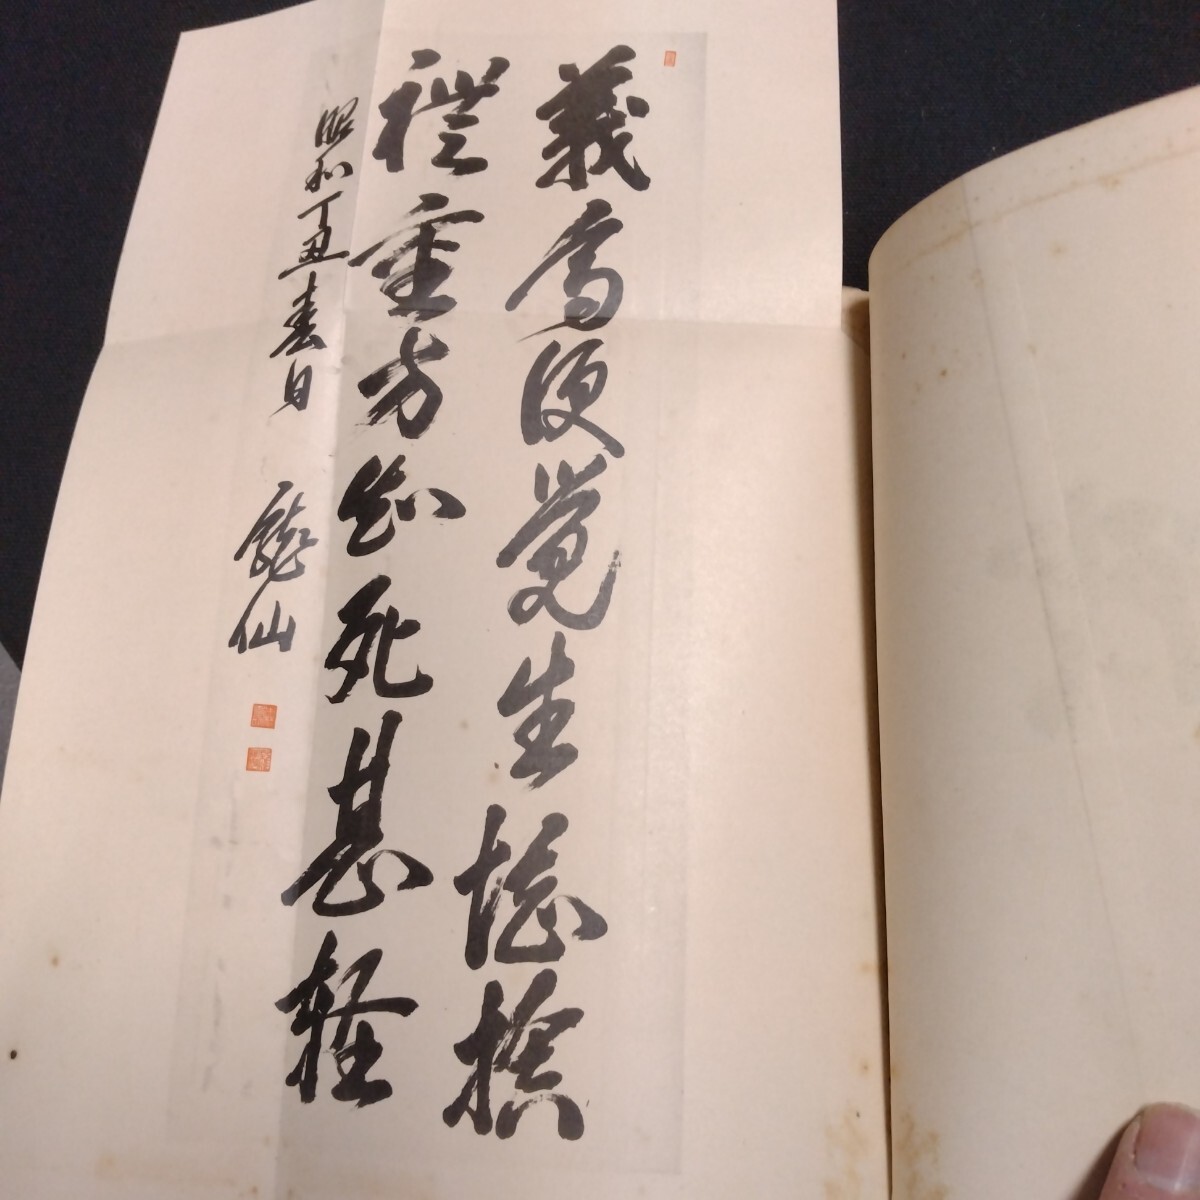 義高便覚生堪捨
禮重方知死甚軽
昭和丁丑春日 龍仙